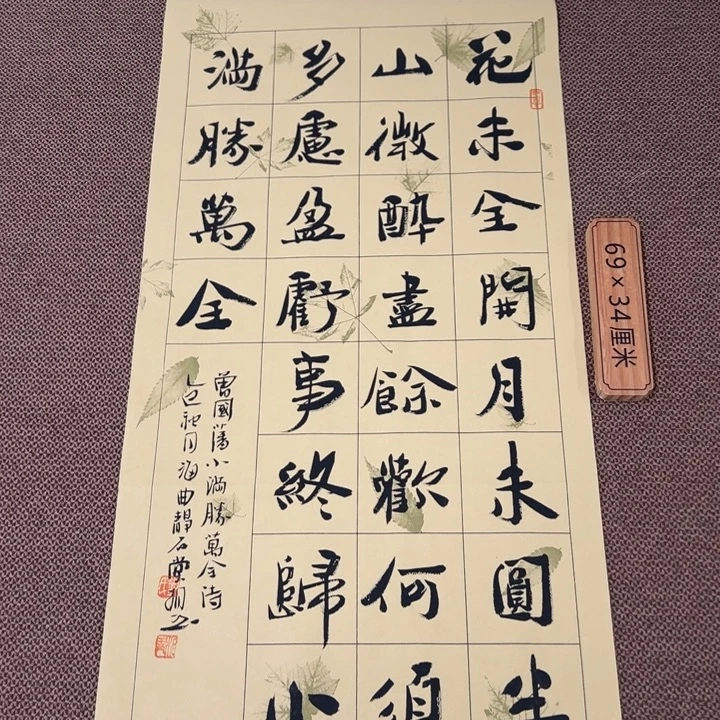 花未全開月未圓半
山微醉盡餘歡何須
多慮盈虧事終歸小
滿勝萬全
曾國藩小滿勝萬全詩
69×34厘米